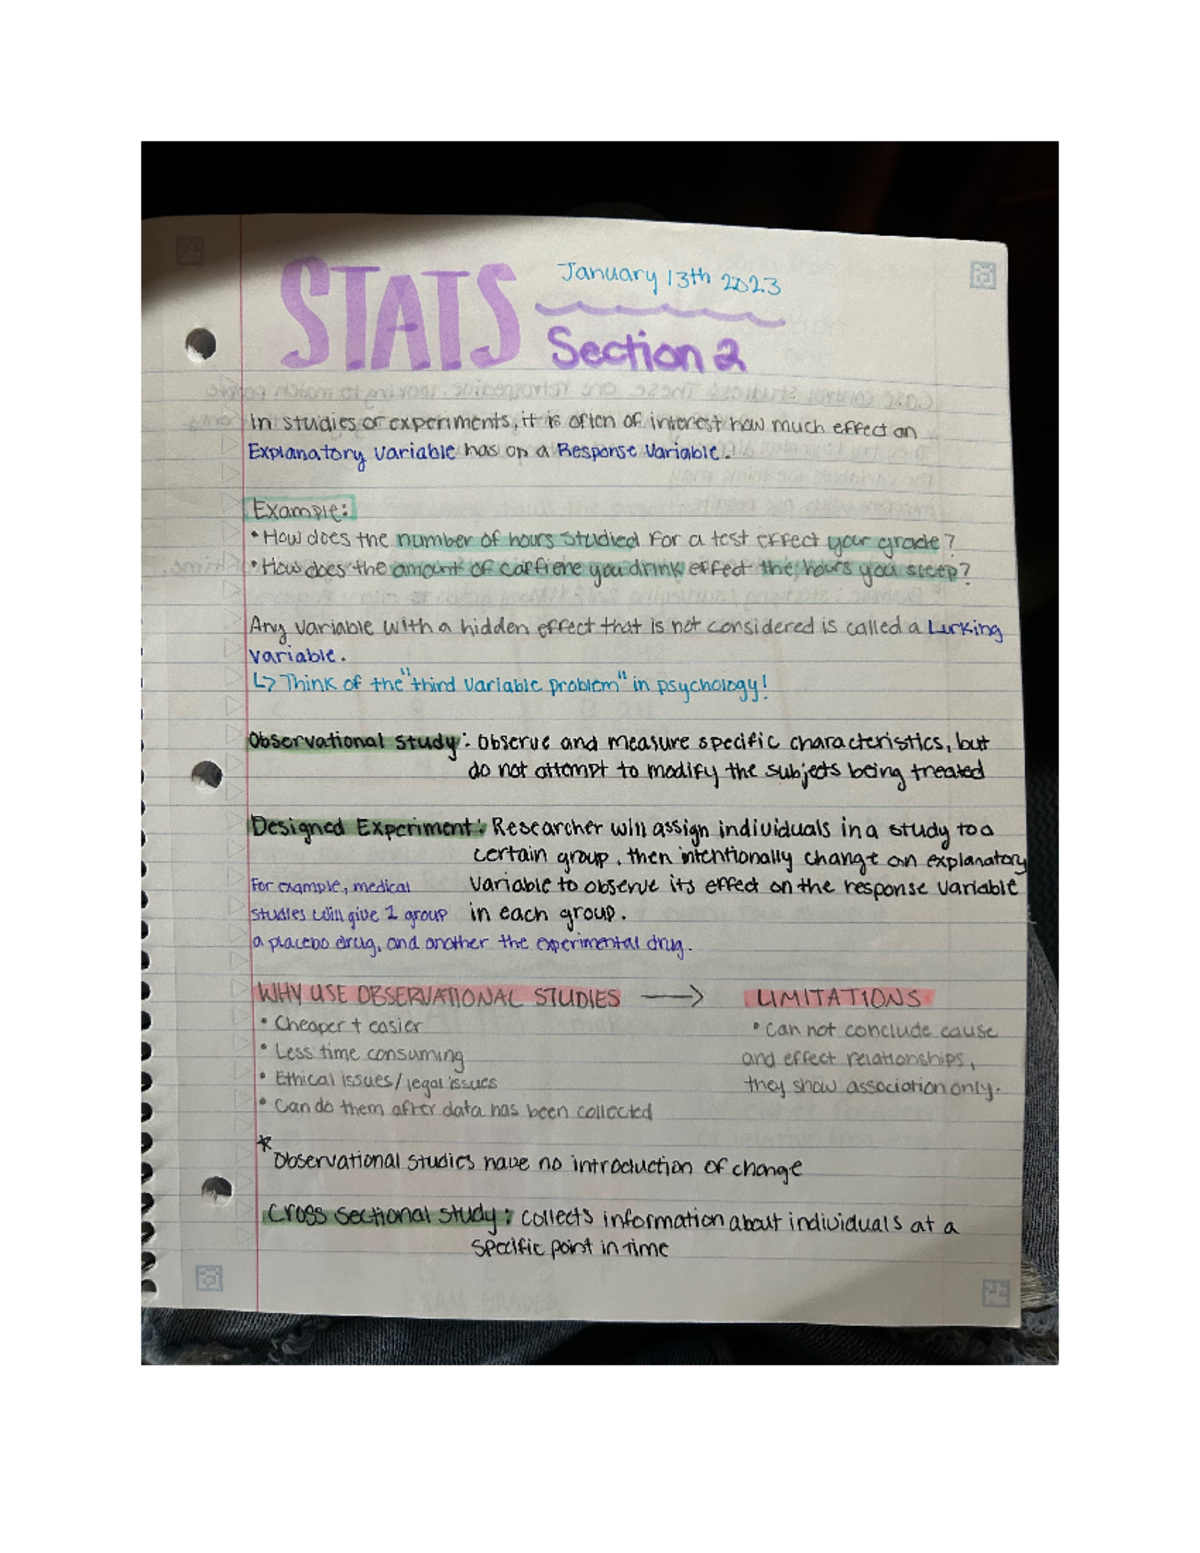 STATS
January 13th 2023
Section 2
In studies or experiments, it is often of interest how much effect an
Explanatory variable has on a Response Variable.
Example:
• How does the number of hours studied for a test effect your grade?
• How does the amount of caffiene you drink effect the hours you sleep?
Any variable with a hidden effect that is not considered is called a Lurking
variable.
↳ Think of the "third variable problem" in psychology!
Observational study: Observe and measure specific characteristics, but
do not attempt to modify the subjects being treated
Designed Experiment: Researcher will assign individuals in a study to a
certain group, then intentionally change an explanatory
For example, medical variable to observe its effect on the response variable
studies will give 1 group in each group.
a placebo drug, and another the experimental drug.
WHY USE OBSERVATIONAL STUDIES → LIMITATIONS
• Cheaper + easier • Can not conclude cause
• Less time consuming and effect relationships,
• Ethical issues/legal issues they show association only.
• Can do them after data has been collected
* Observational studies have no introduction of change
Cross sectional study: collects information about individuals at a
specific point in time